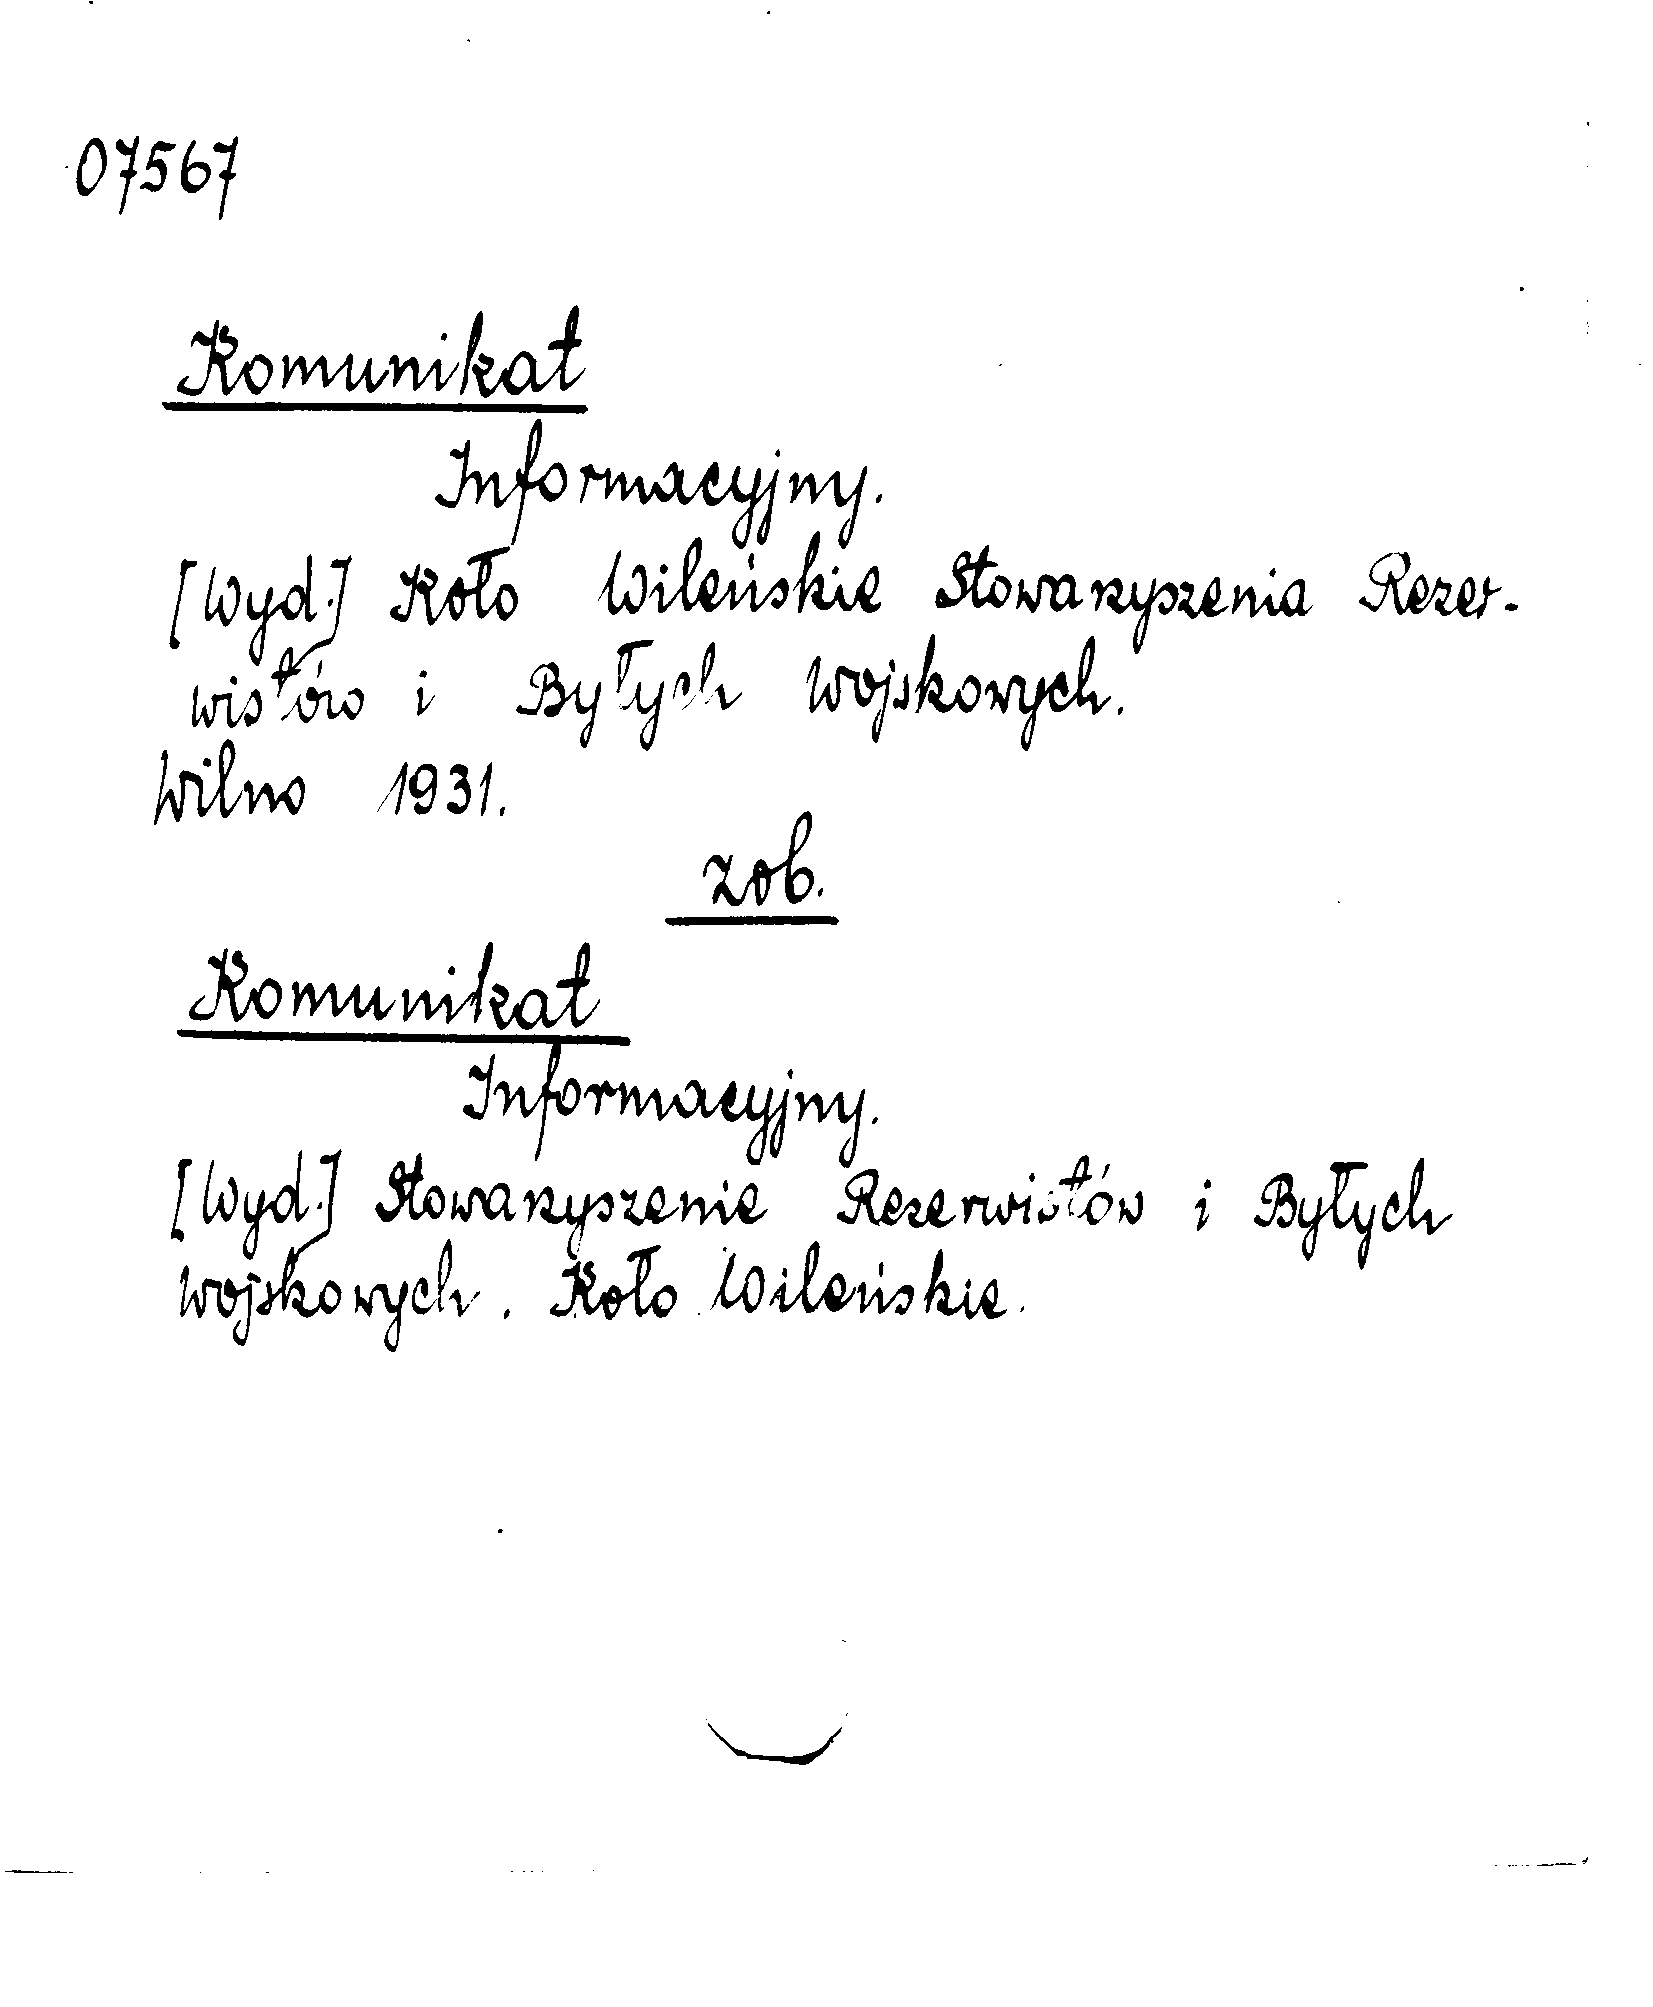 07567
Komunikat
Informacyjny.
[Wyd.] Koło Wileńskie Stowarzyszenia Rezer-
wistów i Byłych Wojskowych.
Wilno 1931.
zob.
Komunikat
Informacyjny.
[Wyd.] Stowarzyszenie Rezerwistów i Byłych
Wojskowych. Koło Wileńskie.